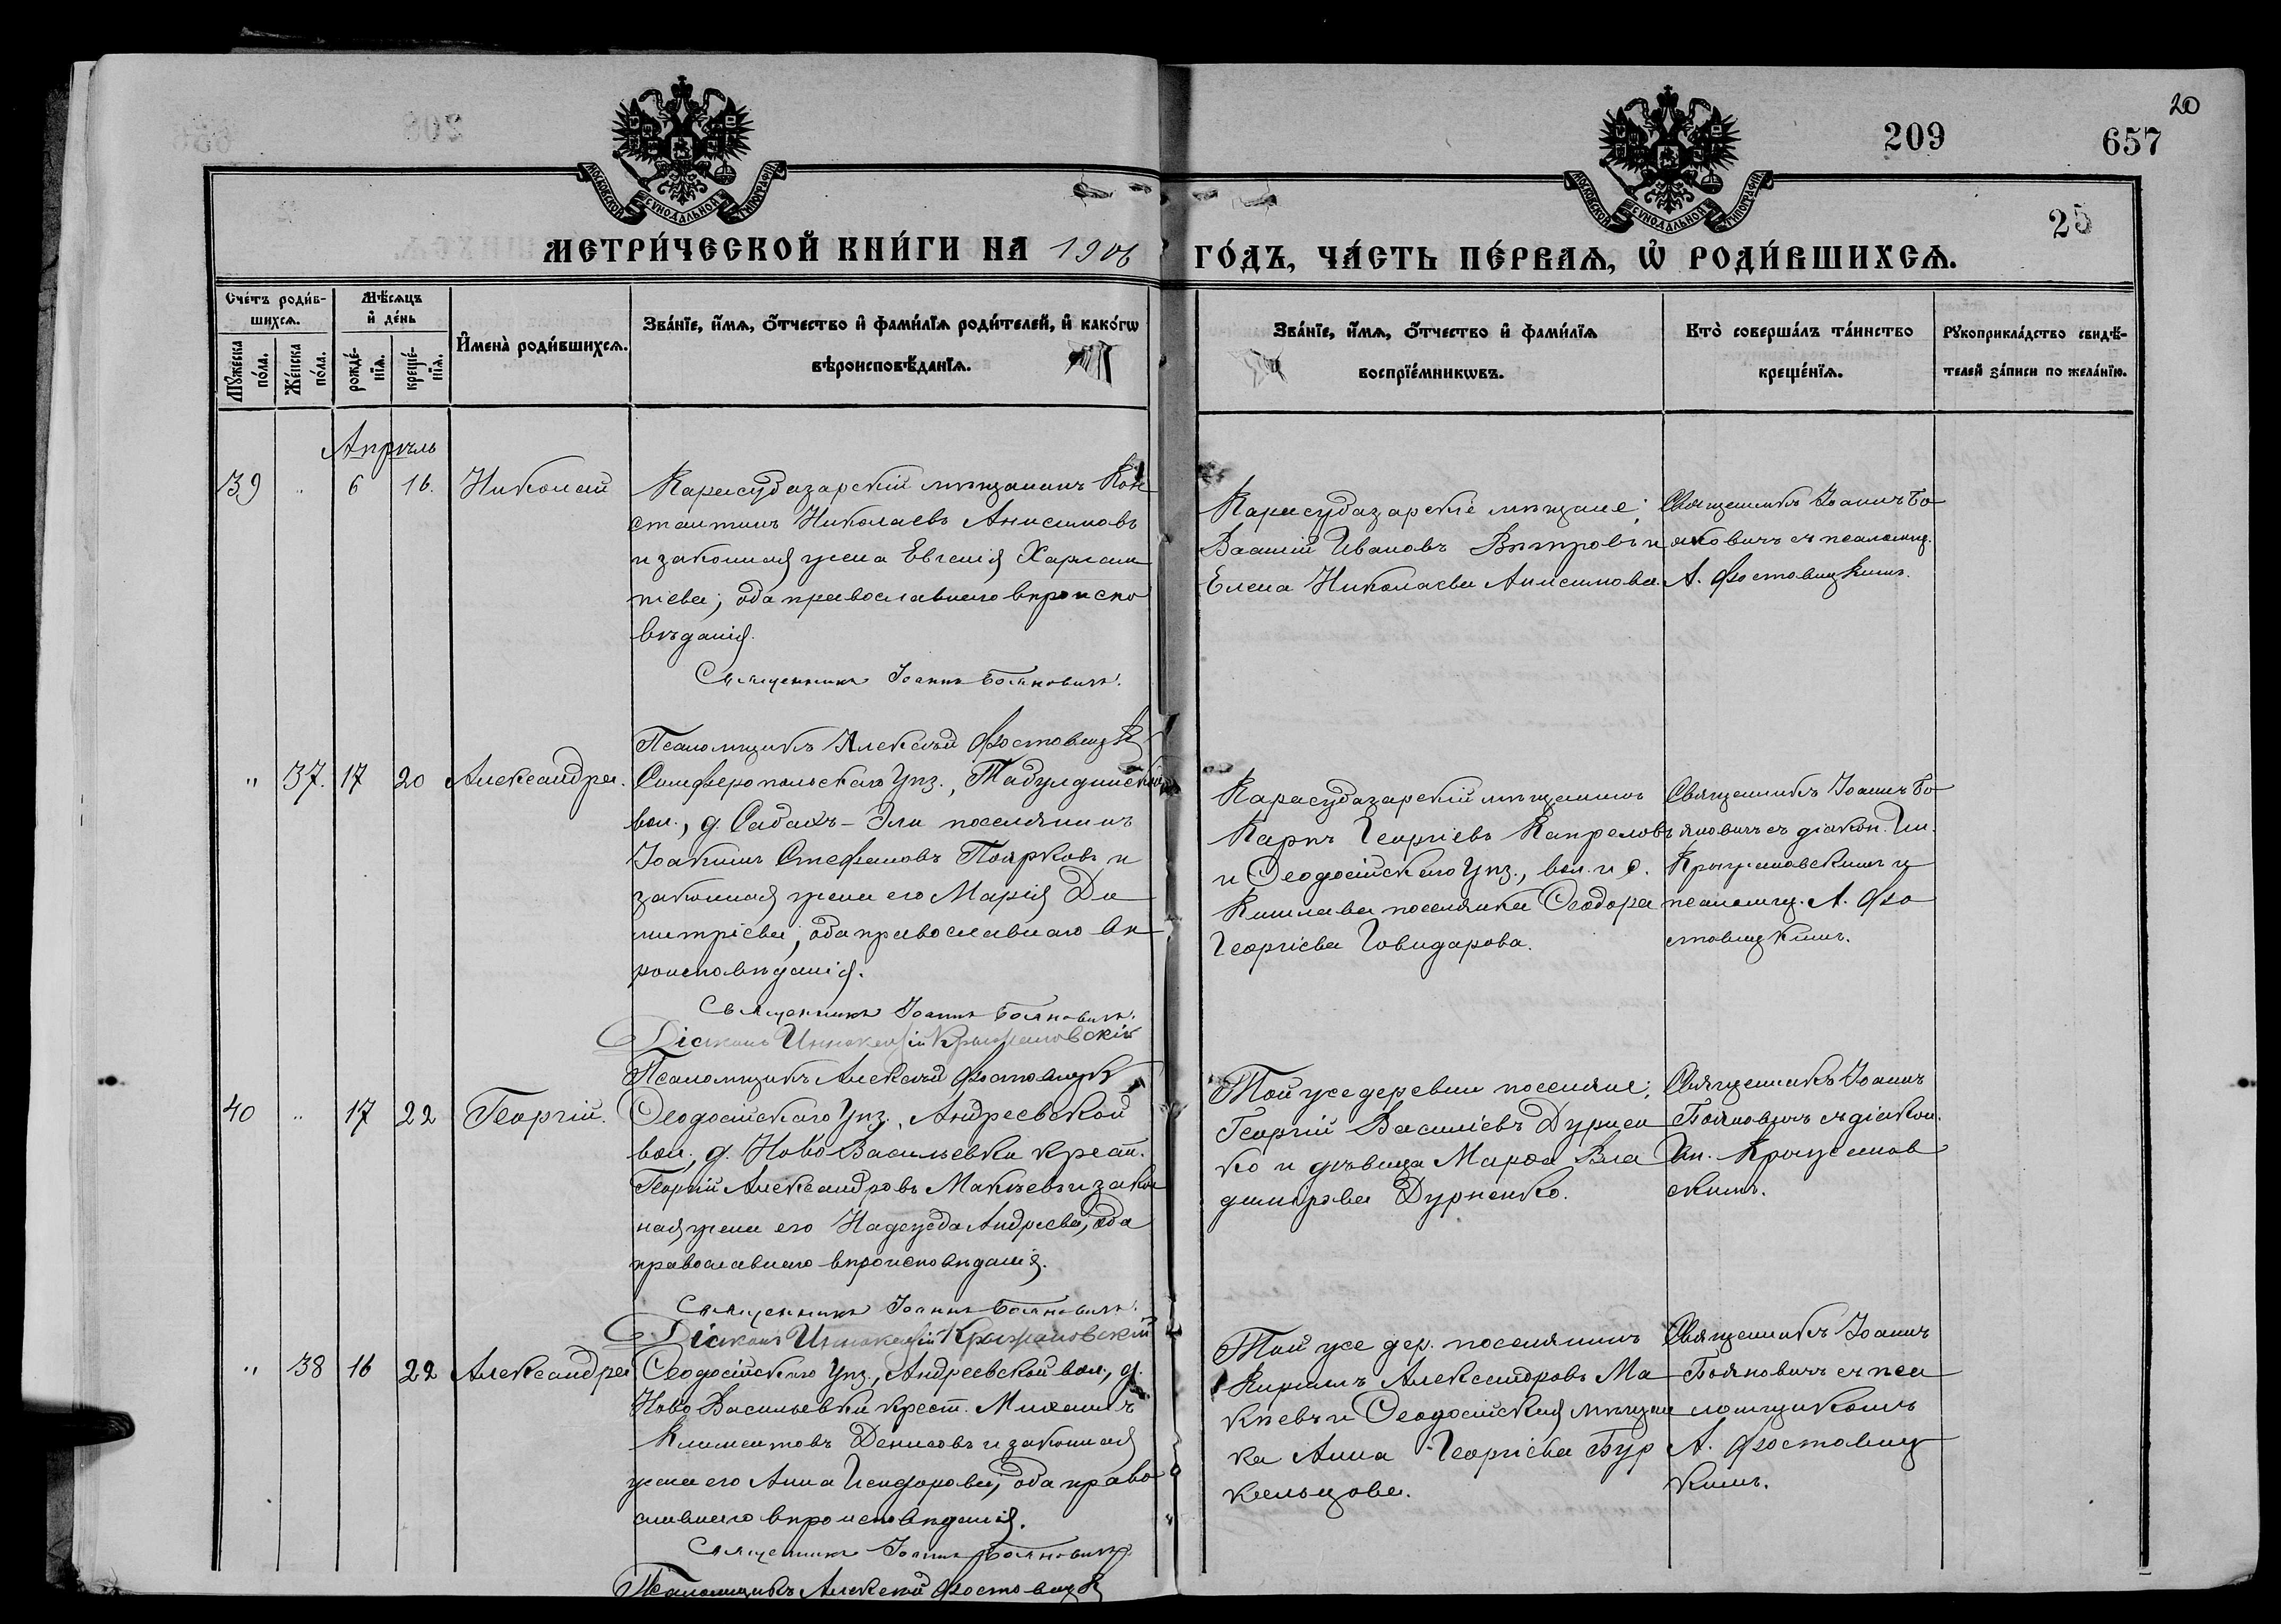 20
209
657
25
МОСКОВСКОЙ СѴНОДАЛЬНОЙ ТИПОГРАФІИ
МОСКОВСКОЙ СѴНОДАЛЬНОЙ ТИПОГРАФІИ
МЕТРИ́ЧЕСКОЙ КНИ́ГИ НА 1906
ГО́ДЪ, ЧА́СТЬ ПЕ́РВАѦ, Ѡ҆ РОДИ́ВШИХСѦ.
Сче́тъ роди́в-
шихсѧ.
Мꙋ́жеска по́ла.
Же́нска по́ла.
Мѣ́сѧцъ
и҆ де́нь
рожде́-нїѧ.
креще́-нїѧ.
И҆мена̀ роди́вшихсѧ.
Зва́нїе, и҆́мѧ, о҆́тчество и҆ фами́лїѧ роди́телей, и҆ како́гѡ
вѣроисповѣ́данїѧ.
Зва́нїе, и҆́мѧ, о҆́тчество и҆ фами́лїѧ
воспрїе́мникѡвъ.
Кто̀ соверша́лъ та́инство
креще́нїѧ.
Рꙋкоприкла́дство свидѣ́-
телей за́писи по жела́нїю.
Апрѣль
39 " 6 16. Николай
Карасубазарскій мѣщанинъ Кон
стантинъ Николаевъ Анисимовъ
и законная жена Евгенія Харлам
піева; оба православнаго вѣроиспо
вѣданія.
Священникъ Іоаннъ Бояновичъ.
Псаломщикъ Алексѣй Фостовиц
Карасубазарскіе мѣщане;
Василій Ивановъ и
Елена Николаева Анисимова
Священникъ Іоаннъ Бо
яновичъ съ псаломщ.
А. Фостовицкимъ.
" 37. 17 20 Александра.
Симферопольскаго уѣз., Табулдинской
вол., д. Сабахъ-Эли поселянинъ
Іоакимъ Стефановъ Поярковъ и
законная жена его Марія Ди
митріева; оба православнаго вѣ
роисповѣданія.
Священникъ Іоаннъ Бояновичъ.
Діаконъ Иннокентій Крыжановскій
Псаломщикъ Алексѣй Фостовицк
Карасубазарскій мѣщанинъ
Карпъ Георгіевъ Капреловъ
и Ѳеодосійскаго уѣз., вол. и д.
Кишлава поселянка Ѳеодора
Георгіева Говидарова.
Священникъ Іоаннъ Бо
яновичъ съ діакон. Ин.
Крыжановскимъ и
псаломщ. А. Фо
стовицкимъ.
40 " 17 22 Георгій.
Ѳеодосійскаго уѣз., Андреевской
вол., д. Ново Васильевки крест.
Георгій Александровъ Макѣевъ и закон
ная жена его Надежда Андреева, оба
православнаго вѣроисповѣданія.
Священникъ Іоаннъ Бояновичъ.
Діаконъ Иннокентій Крыжановскій
Той же деревни поселяне;
Георгій Василіевъ Дурнен
ко и дѣвица Марѳа Вла
димірова Дурненко.
Священникъ Іоаннъ
Бояновичъ съ діакон.
Ин. Крыжанов
скимъ.
" 38 16 22 Александра
Ѳеодосійскаго уѣз., Андреевской вол., д.
Ново Васильевки крест. Михаилъ
Климентовъ Денисовъ и законная
жена его Анна Исидорова, оба право
славнаго вѣроисповѣданія.
Священникъ Іоаннъ Бояновичъ
Псаломщикъ Алексѣй Фостовицк
Той же дер. поселянинъ
Кириллъ Александровъ Ма
кѣевъ и Ѳеодосійская мѣщан
ка Анна Георгіева Бур
кальцова.
Священникъ Іоаннъ
Бояновичъ съ пса
ломщикомъ
А. Фостовиц
кимъ.